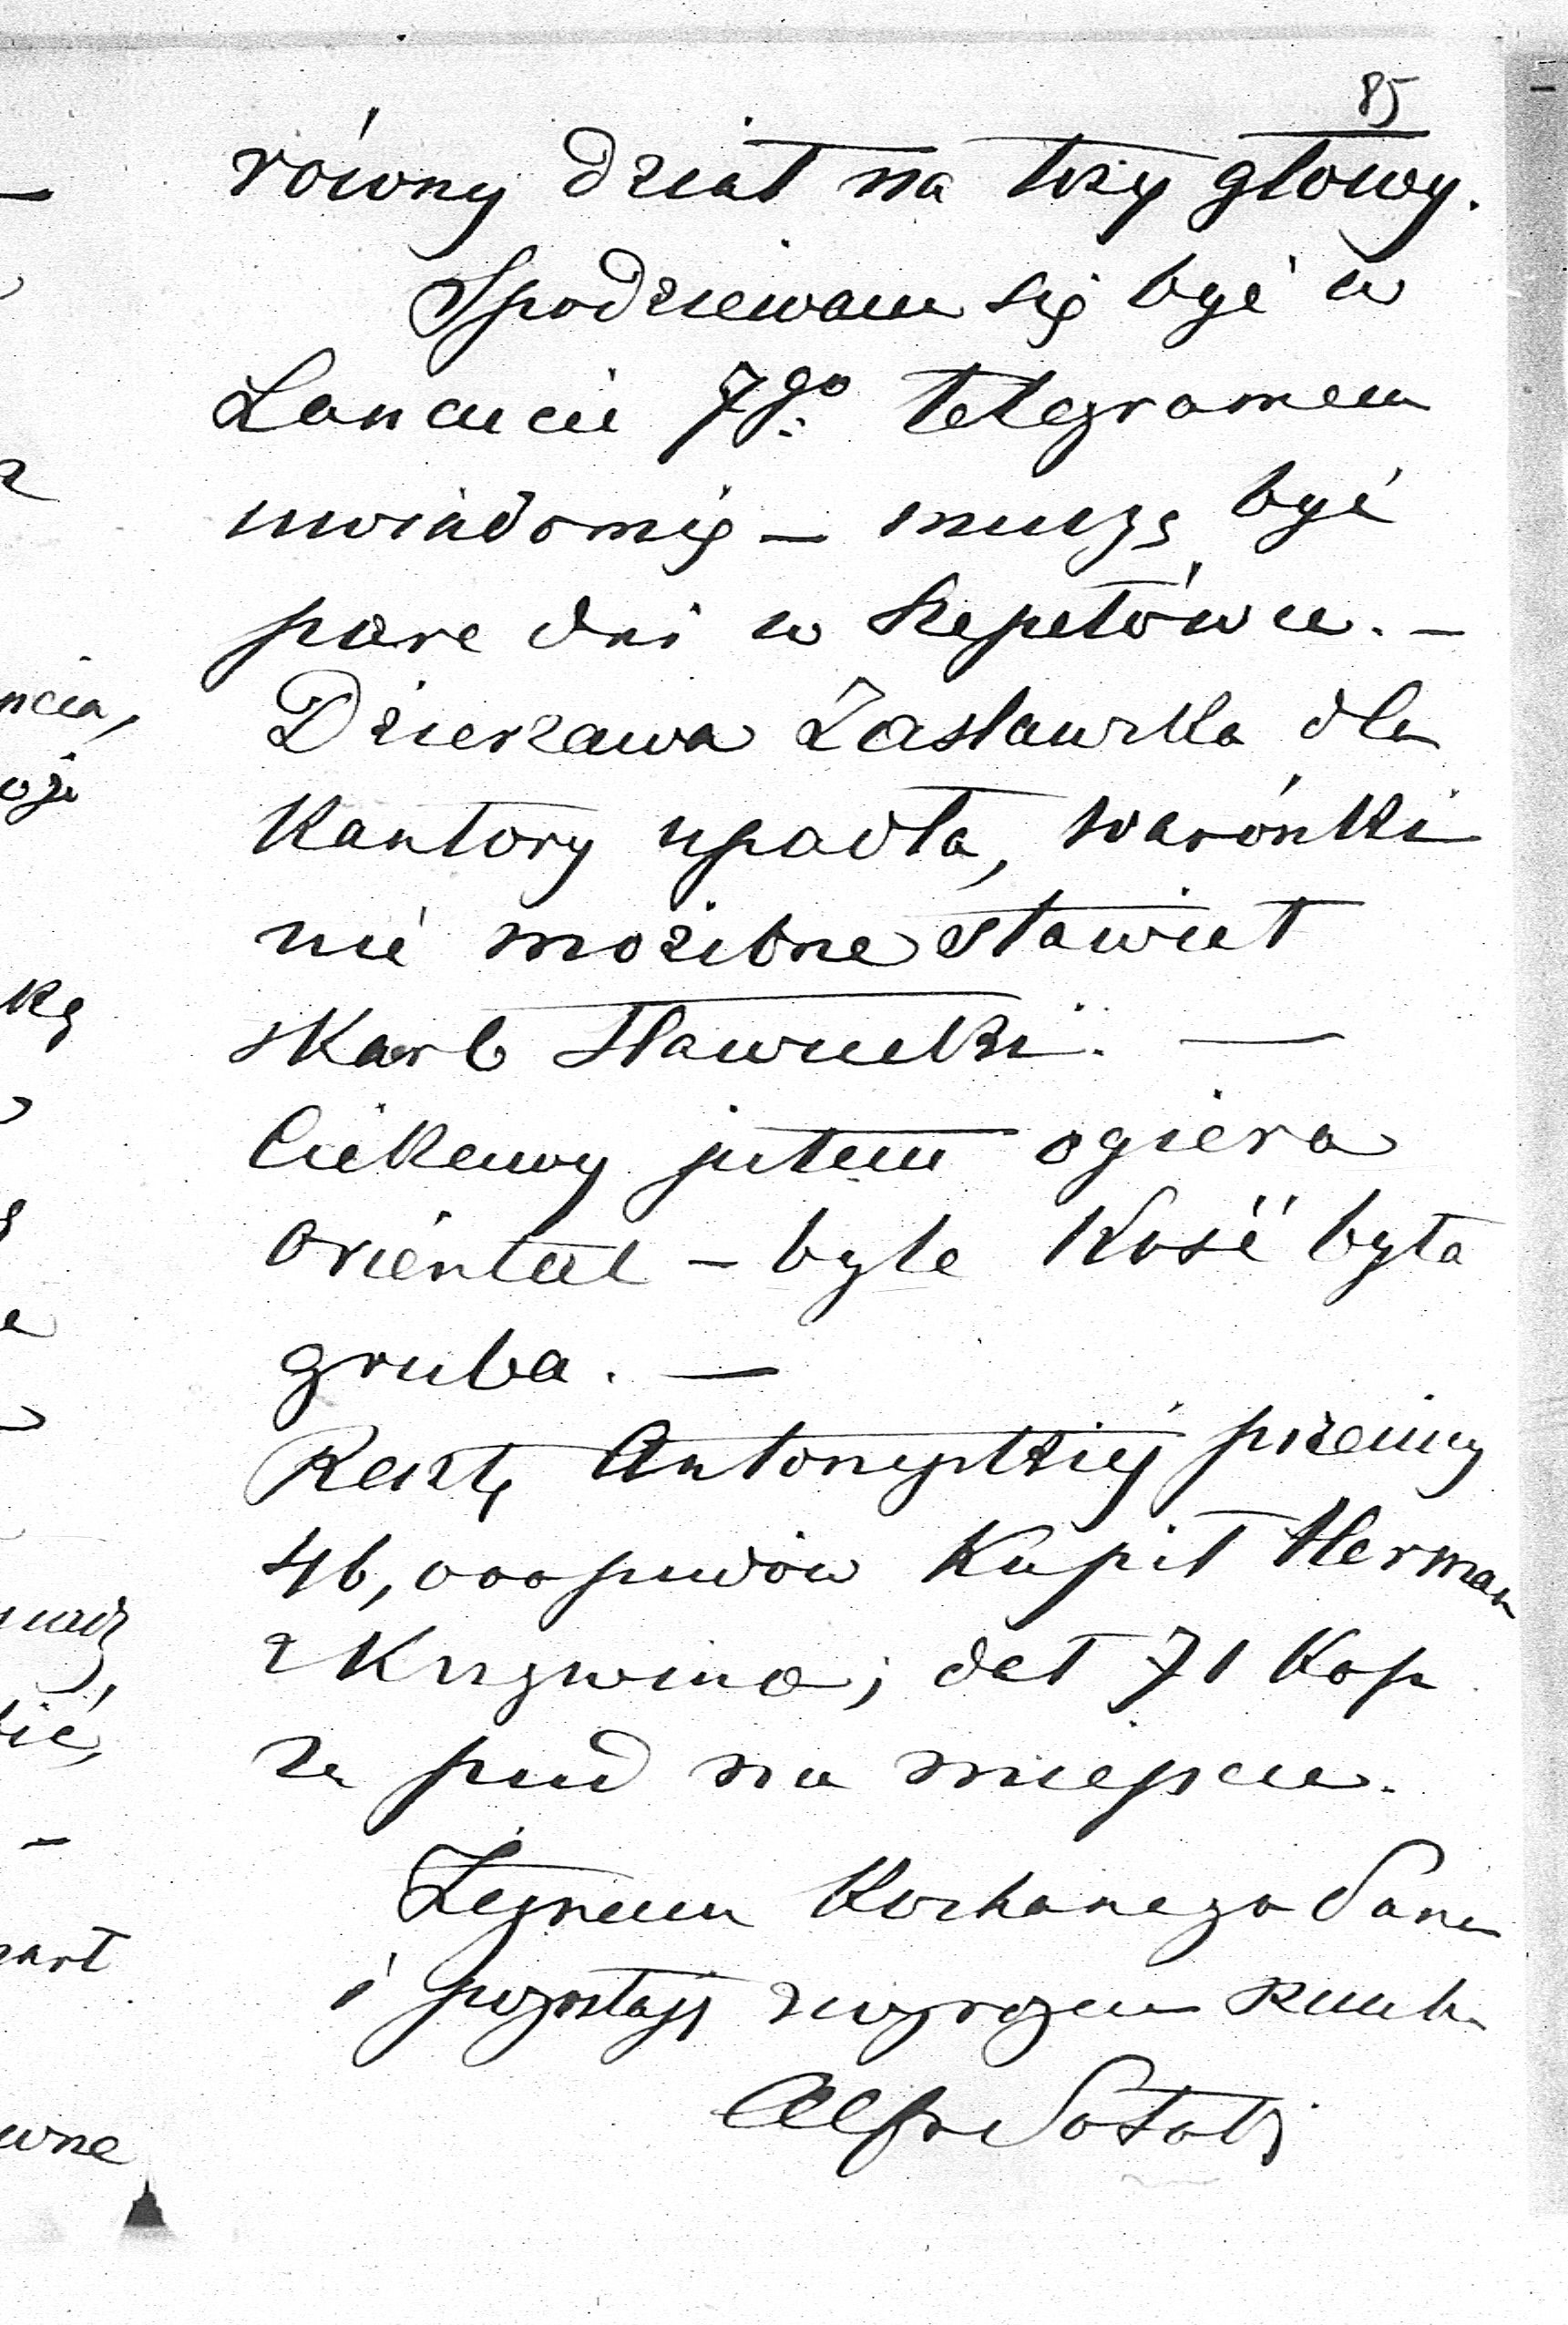 85
równy dział na trzy głowy.
Spodziewam się być w
Lancucie 7go telegramem
uwiadomię — muszę być
pare dni w Szepetówce. —
Dzierzawa Zasławska dla
Kantory upadła, warónki
nié możebne stawiał
skarb Sławucki. —
Ciekawy jestem ogiera
oriental — byle Kość była
gruba. —
Resztę Antonyńskiéj pszenicy
46,000 pudów Kupił Herman
z Krzywina; dał 71 Kop
za pud na miejscu.
Żegnam Kochanego Pana
i pozostaję
Alfr Potocki
ncia,
kę
wne